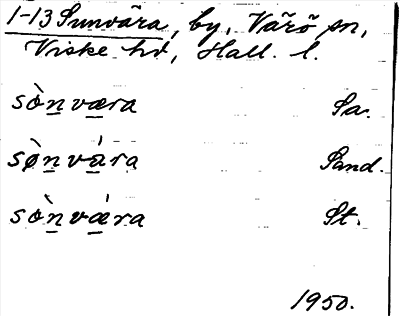 1-13 Sunvära, by, Värö sn,
Viske hd, Hall. l.
sòn̲væ̲ra Sa.
sø̀n̲vá̲ra Sand.
sòn̲vǽ̲ra St.
1950.